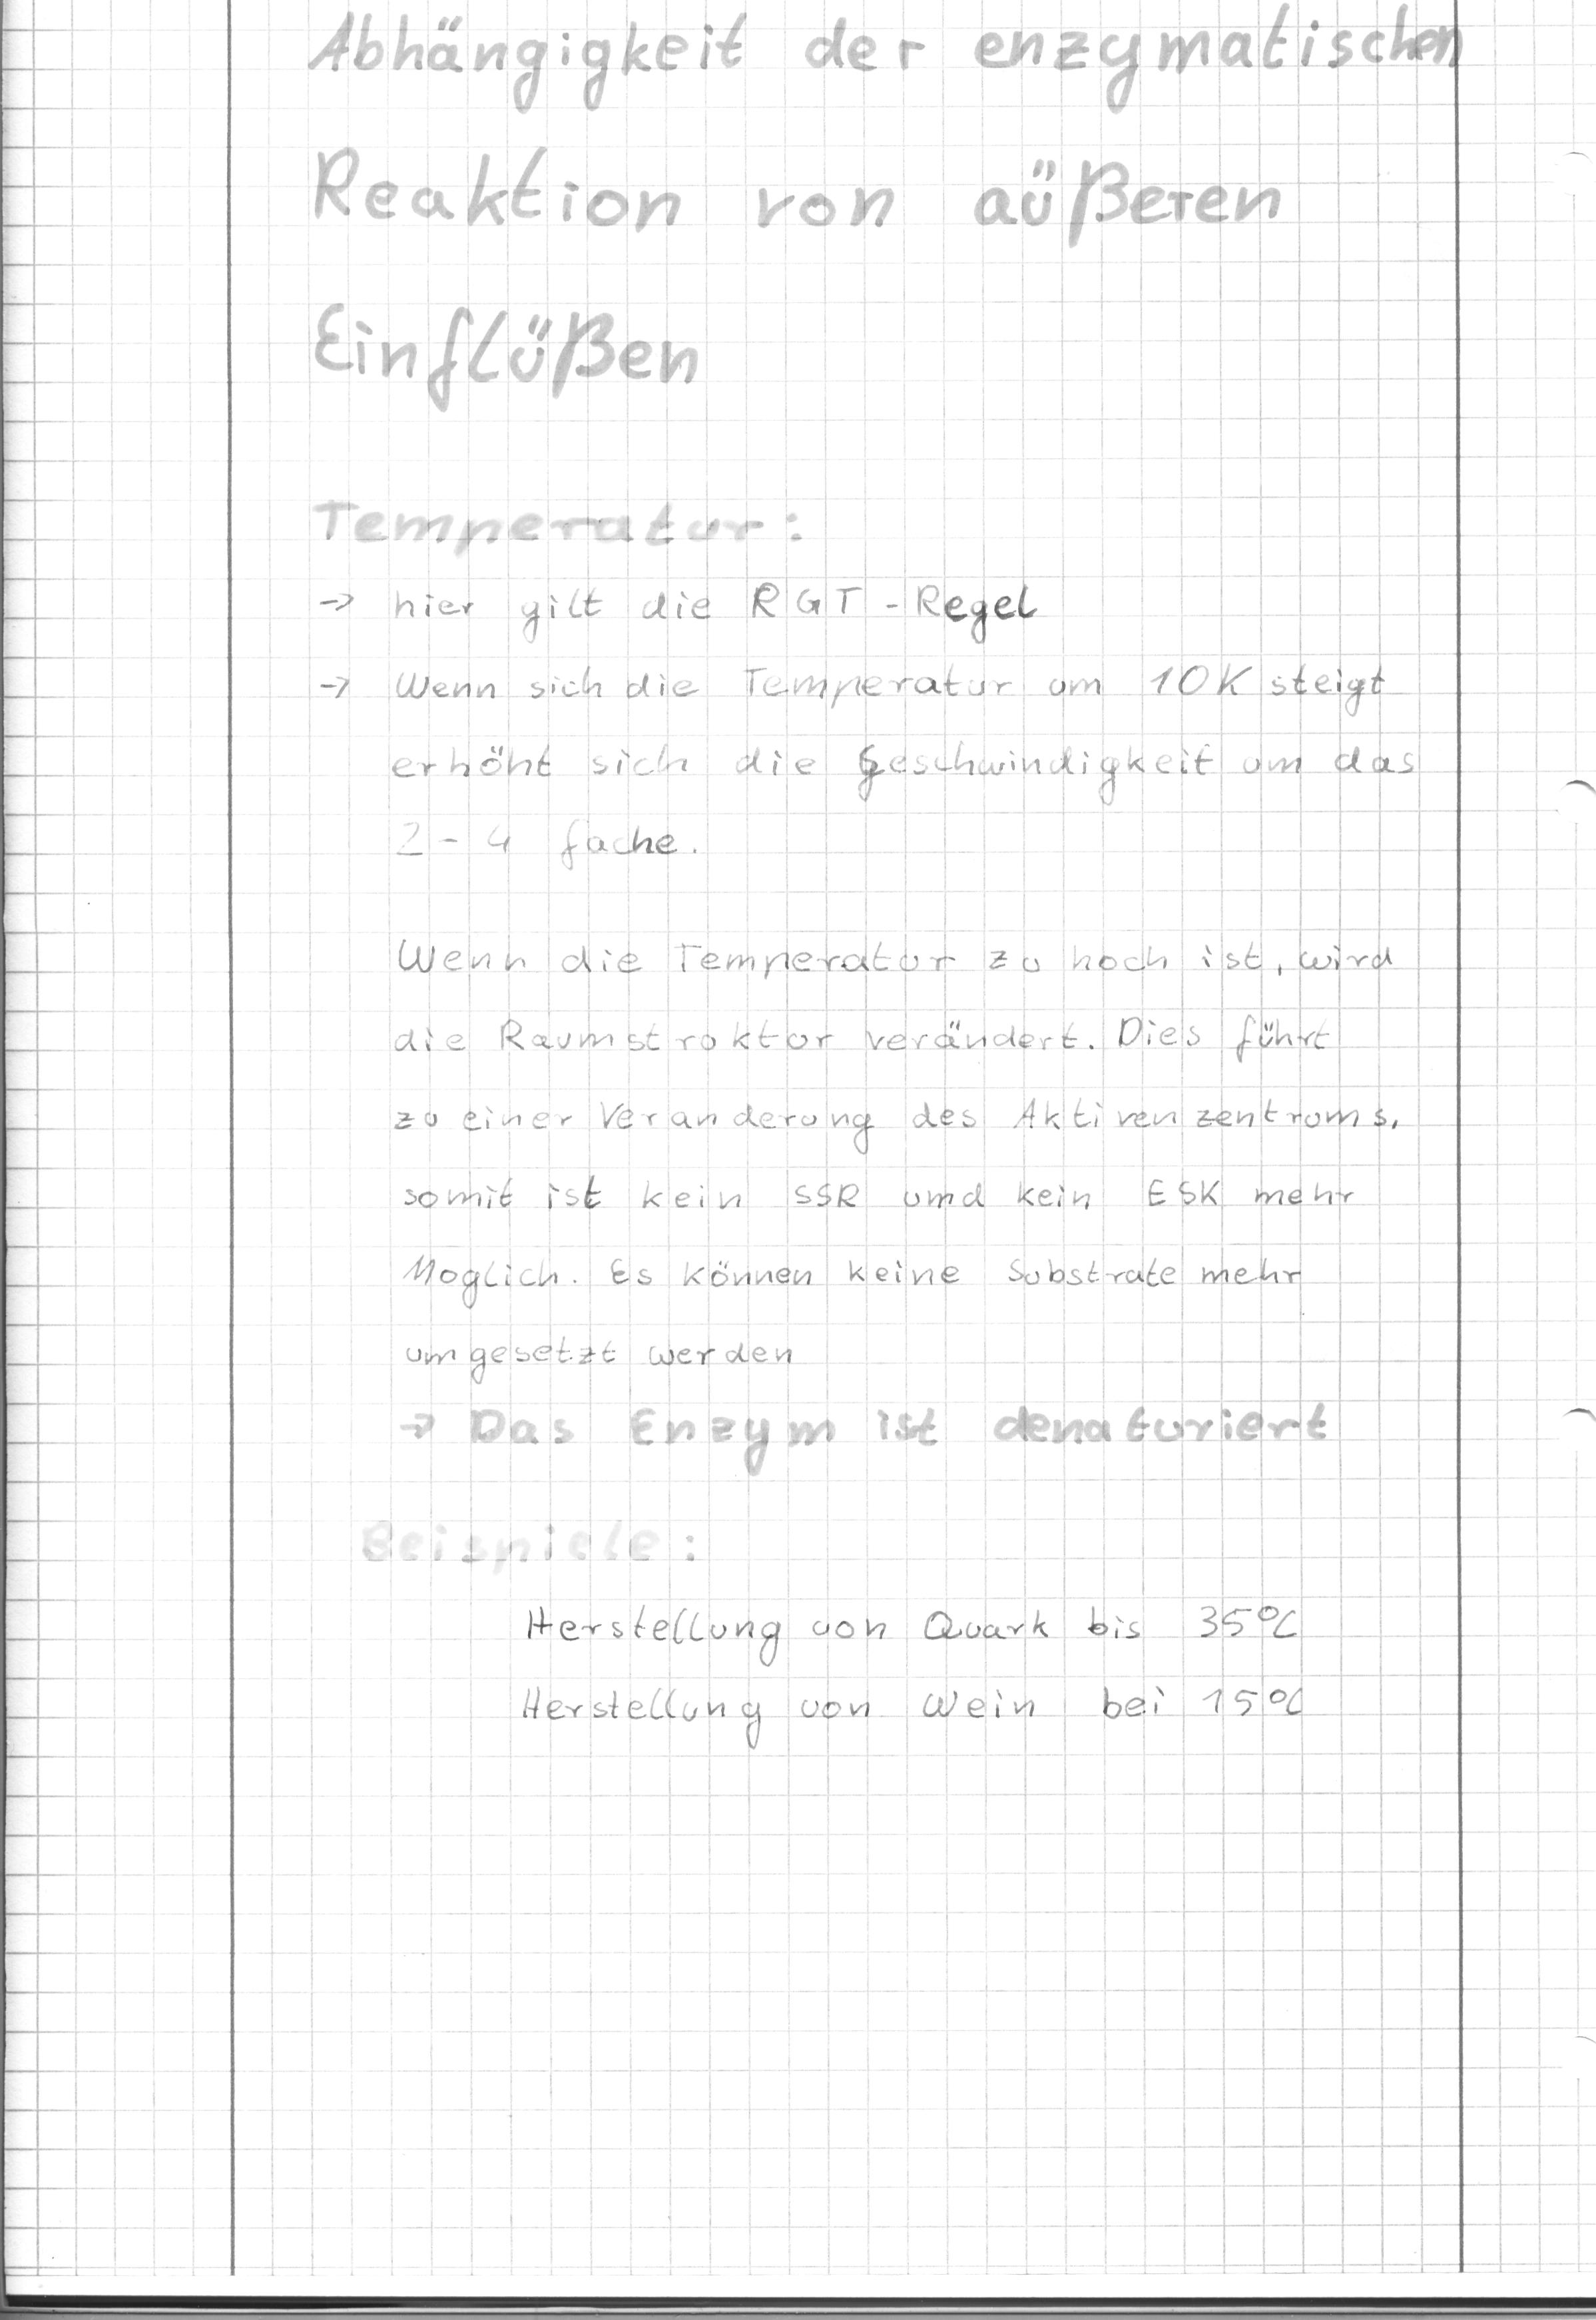 Abhängigkeit der enzymatischen
Reaktion von aüßeren
Einflüßen
Temperatur:
→ hier gilt die RGT-Regel
→ Wenn sich die Temperatur um 10K steigt
erhöht sich die Geschwindigkeit um das
2-4 fache.
Wenn die Temperatur zu hoch ist, wird
die Raumstruktur verändert. Dies führt
zu einer Veranderung des Aktiven zentrums,
somit ist kein SSR und kein ESK mehr
Moglich. Es können keine Substrate mehr
umgesetzt werden
→ Das Enzym ist denaturiert
Beispiele:
Herstellung von Quark bis 35°C
Herstellung von Wein bei 15°C